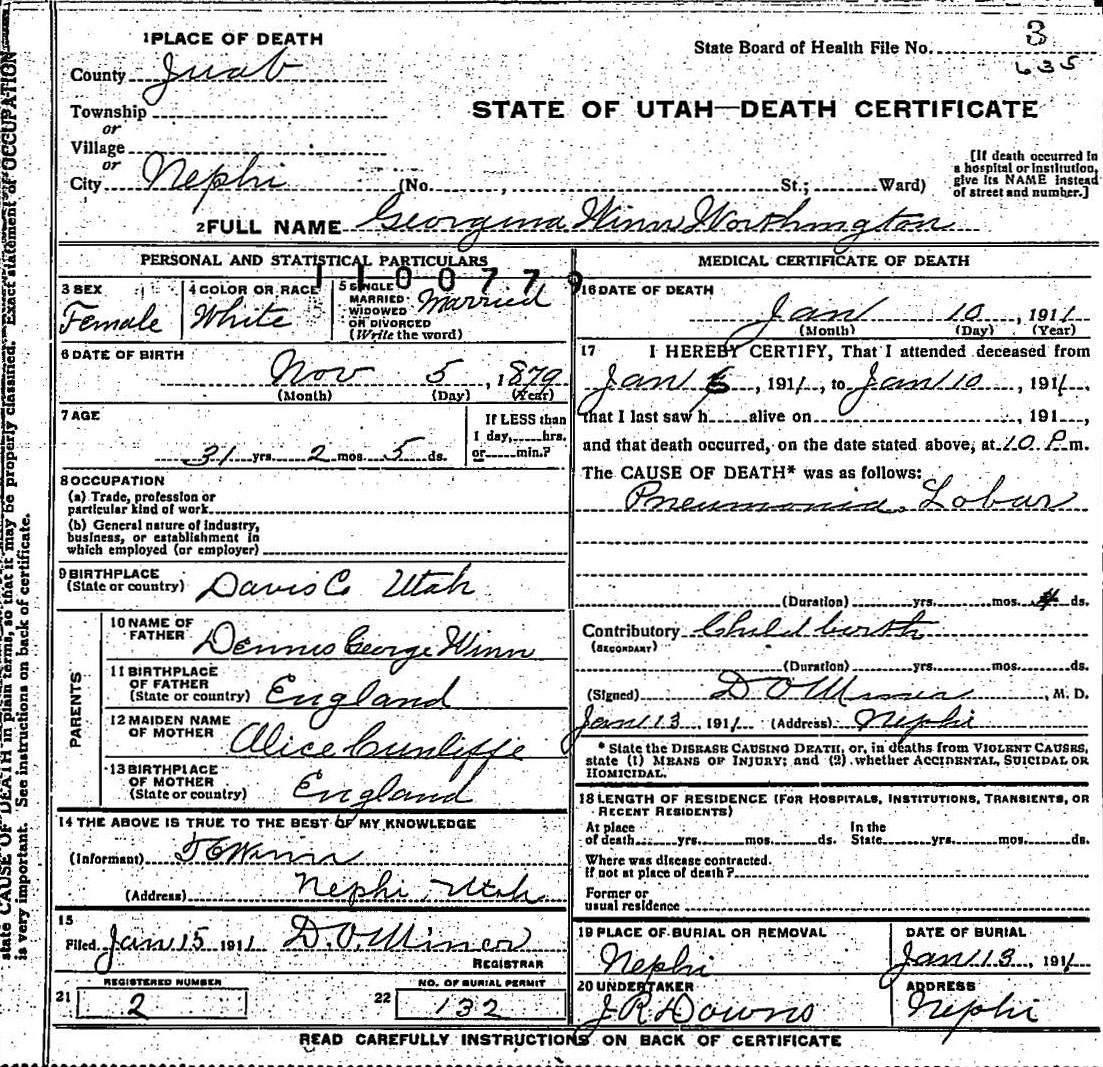 state CAUSE OF DEATH in plain terms, so that it may be properly classified. Exact statement of OCCUPATION
is very important. See instructions on back of certificate.
1 PLACE OF DEATH
State Board of Health File No. 3
635
County Juab
STATE OF UTAH—DEATH CERTIFICATE
Township
or
Village
or
City Nephi (No. , St.; Ward)
[If death occurred in
a hospital or institution,
give its NAME instead
of street and number.]
2 FULL NAME Georgina Winn Worthington
PERSONAL AND STATISTICAL PARTICULARS
1100779
3 SEX
Female
4 COLOR OR RACE
White
5 SINGLE
MARRIED
WIDOWED
OR DIVORCED
(Write the word)
Married
6 DATE OF BIRTH
Nov 5, 1879
(Month) (Day) (Year)
7 AGE
31 yrs. 2 mos. 5 ds.
If LESS than
1 day, hrs.
or min.?
8 OCCUPATION
(a) Trade, profession or
particular kind of work
(b) General nature of industry,
business, or establishment in
which employed (or employer)
9 BIRTHPLACE
(State or country) Davis Co Utah
PARENTS
10 NAME OF
FATHER Dennis George Winn
11 BIRTHPLACE
OF FATHER
(State or country) England
12 MAIDEN NAME
OF MOTHER Alice Cunliffe
13 BIRTHPLACE
OF MOTHER
(State or country) England
14 THE ABOVE IS TRUE TO THE BEST OF MY KNOWLEDGE
(Informant) Winn
(Address) Nephi, Utah
15
Filed Jan 15 1911 D. O. Miner
REGISTRAR
21 REGISTERED NUMBER
2
22 NO. OF BURIAL PERMIT
132
MEDICAL CERTIFICATE OF DEATH
16 DATE OF DEATH
Jan 10, 1911
(Month) (Day) (Year)
17 I HEREBY CERTIFY, That I attended deceased from
Jan , 1911, to Jan 10, 1911,
that I last saw h alive on , 191 ,
and that death occurred, on the date stated above, at 10 P m.
The CAUSE OF DEATH* was as follows:
Pneumonia, Lobar
(Duration) yrs. mos. 4 ds.
Contributory Childbirth
(SECONDARY)
(Duration) yrs. mos. ds.
(Signed) D O Miner, M. D.
Jan 13 1911 (Address) Nephi
* State the DISEASE CAUSING DEATH, or, in deaths from VIOLENT CAUSES,
state (1) MEANS OF INJURY; and (2) whether ACCIDENTAL, SUICIDAL OR
HOMICIDAL.
18 LENGTH OF RESIDENCE (FOR HOSPITALS, INSTITUTIONS, TRANSIENTS, OR
RECENT RESIDENTS)
At place
of death yrs. mos. ds.
In the
State yrs. mos. ds.
Where was disease contracted
if not at place of death?
Former or
usual residence
19 PLACE OF BURIAL OR REMOVAL
Nephi
DATE OF BURIAL
Jan 13, 1911
20 UNDERTAKER
J. R. Downs
ADDRESS
Nephi
READ CAREFULLY INSTRUCTIONS ON BACK OF CERTIFICATE